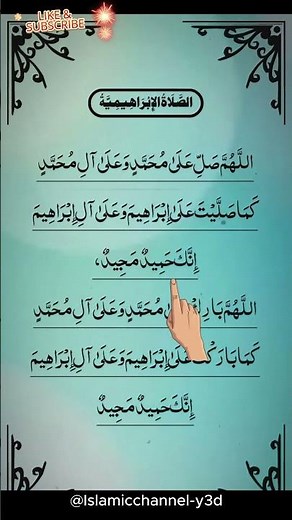 LIKE &
SUBSCRIBE
الصَّلَاةُ الإِبْرَاهِيمِيَّةُ
اللَّهُمَّ صَلِّ عَلَىٰ مُحَمَّدٍ وَعَلَىٰ آلِ مُحَمَّدٍ
كَمَا صَلَّيْتَ عَلَىٰ إِبْرَاهِيمَ وَعَلَىٰ آلِ إِبْرَاهِيمَ
إِنَّكَ حَمِيدٌ مَجِيدٌ،
اللَّهُمَّ مُحَمَّدٍ وَعَلَىٰ آلِ مُحَمَّدٍ
كَمَا بَارَكْتَ عَلَىٰ إِبْرَاهِيمَ وَعَلَىٰ آلِ إِبْرَاهِيمَ
إِنَّكَ حَمِيدٌ مَجِيدٌ
@Islamicchannel-y3d